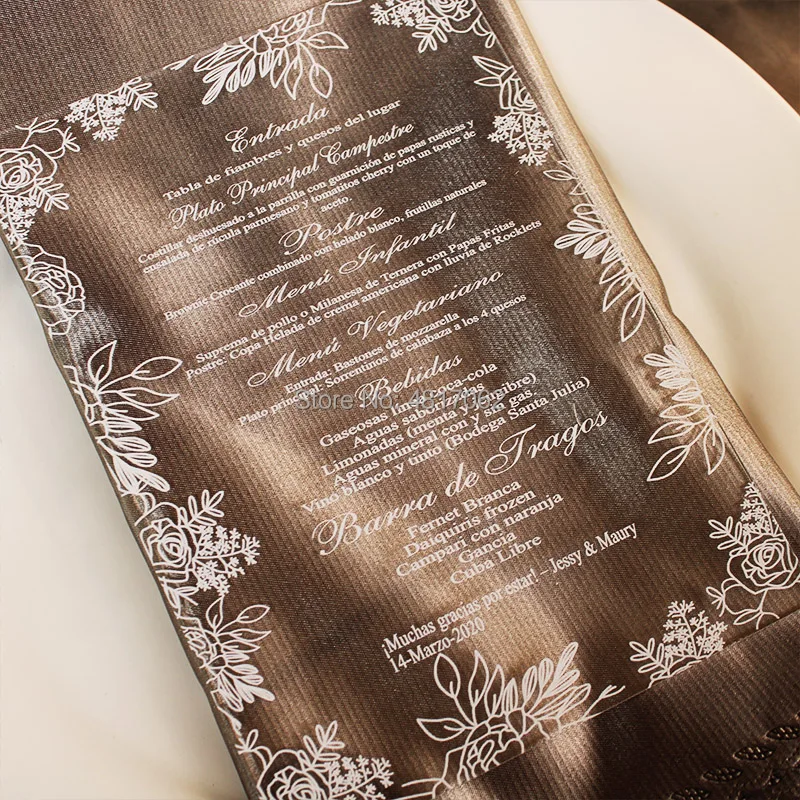 Entrada
Tabla de fiambres y quesos del lugar
Plato Principal Campestre
Costillar deshuecado a la parrilla con guarnición de papas rusticas y
ensalada de rúcula parmesano y tomatitos cherry con un toque de
aceto.
Postre
Brownie Crocante combinado con helado blanco, frutillas naturales
Menú Infantil
Suprema de pollo o Milanesa de Ternera con Papas Fritas
Postre: Copa Helada de crema americana con lluvia de Rocklets
Menú Vegetariano
Entrada: Bastones de mozzarella
Plato principal: Sorrentinos de calabaza a los 4 quesos
Bebidas
Gaseosas línea coca-cola
Aguas saborizadas
Limonadas (menta y jengibre)
Aguas mineral con y sin gas,
Vino blanco y tinto (Bodega Santa Julia)
Barra de Tragos
Fernet Branca
Daiquiris frozen
Campari con naranja
Gancia
Cuba Libre
¡Muchas gracias por estar! – Jessy & Maury
14-Marzo-2020
Store No: 4817062